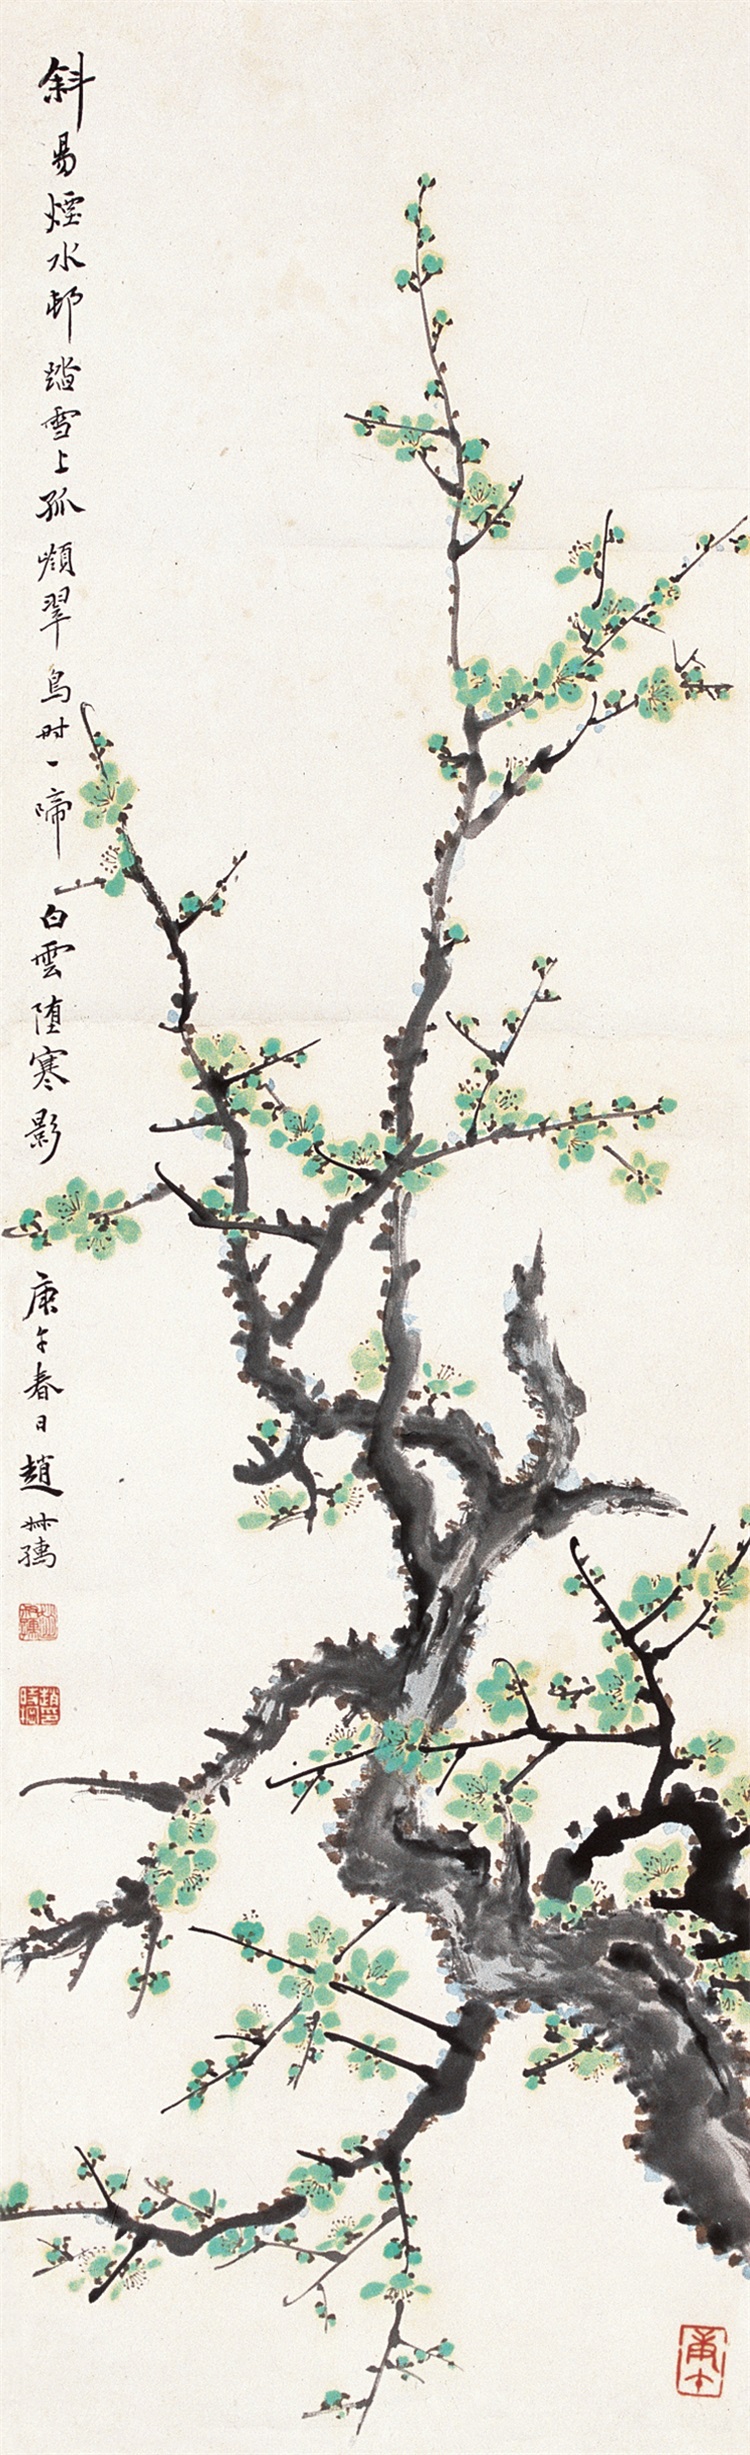 斜昜煙水邨踏雪上孤翠鳥时一啼白雲堕寒影庚午春日趙尗孺